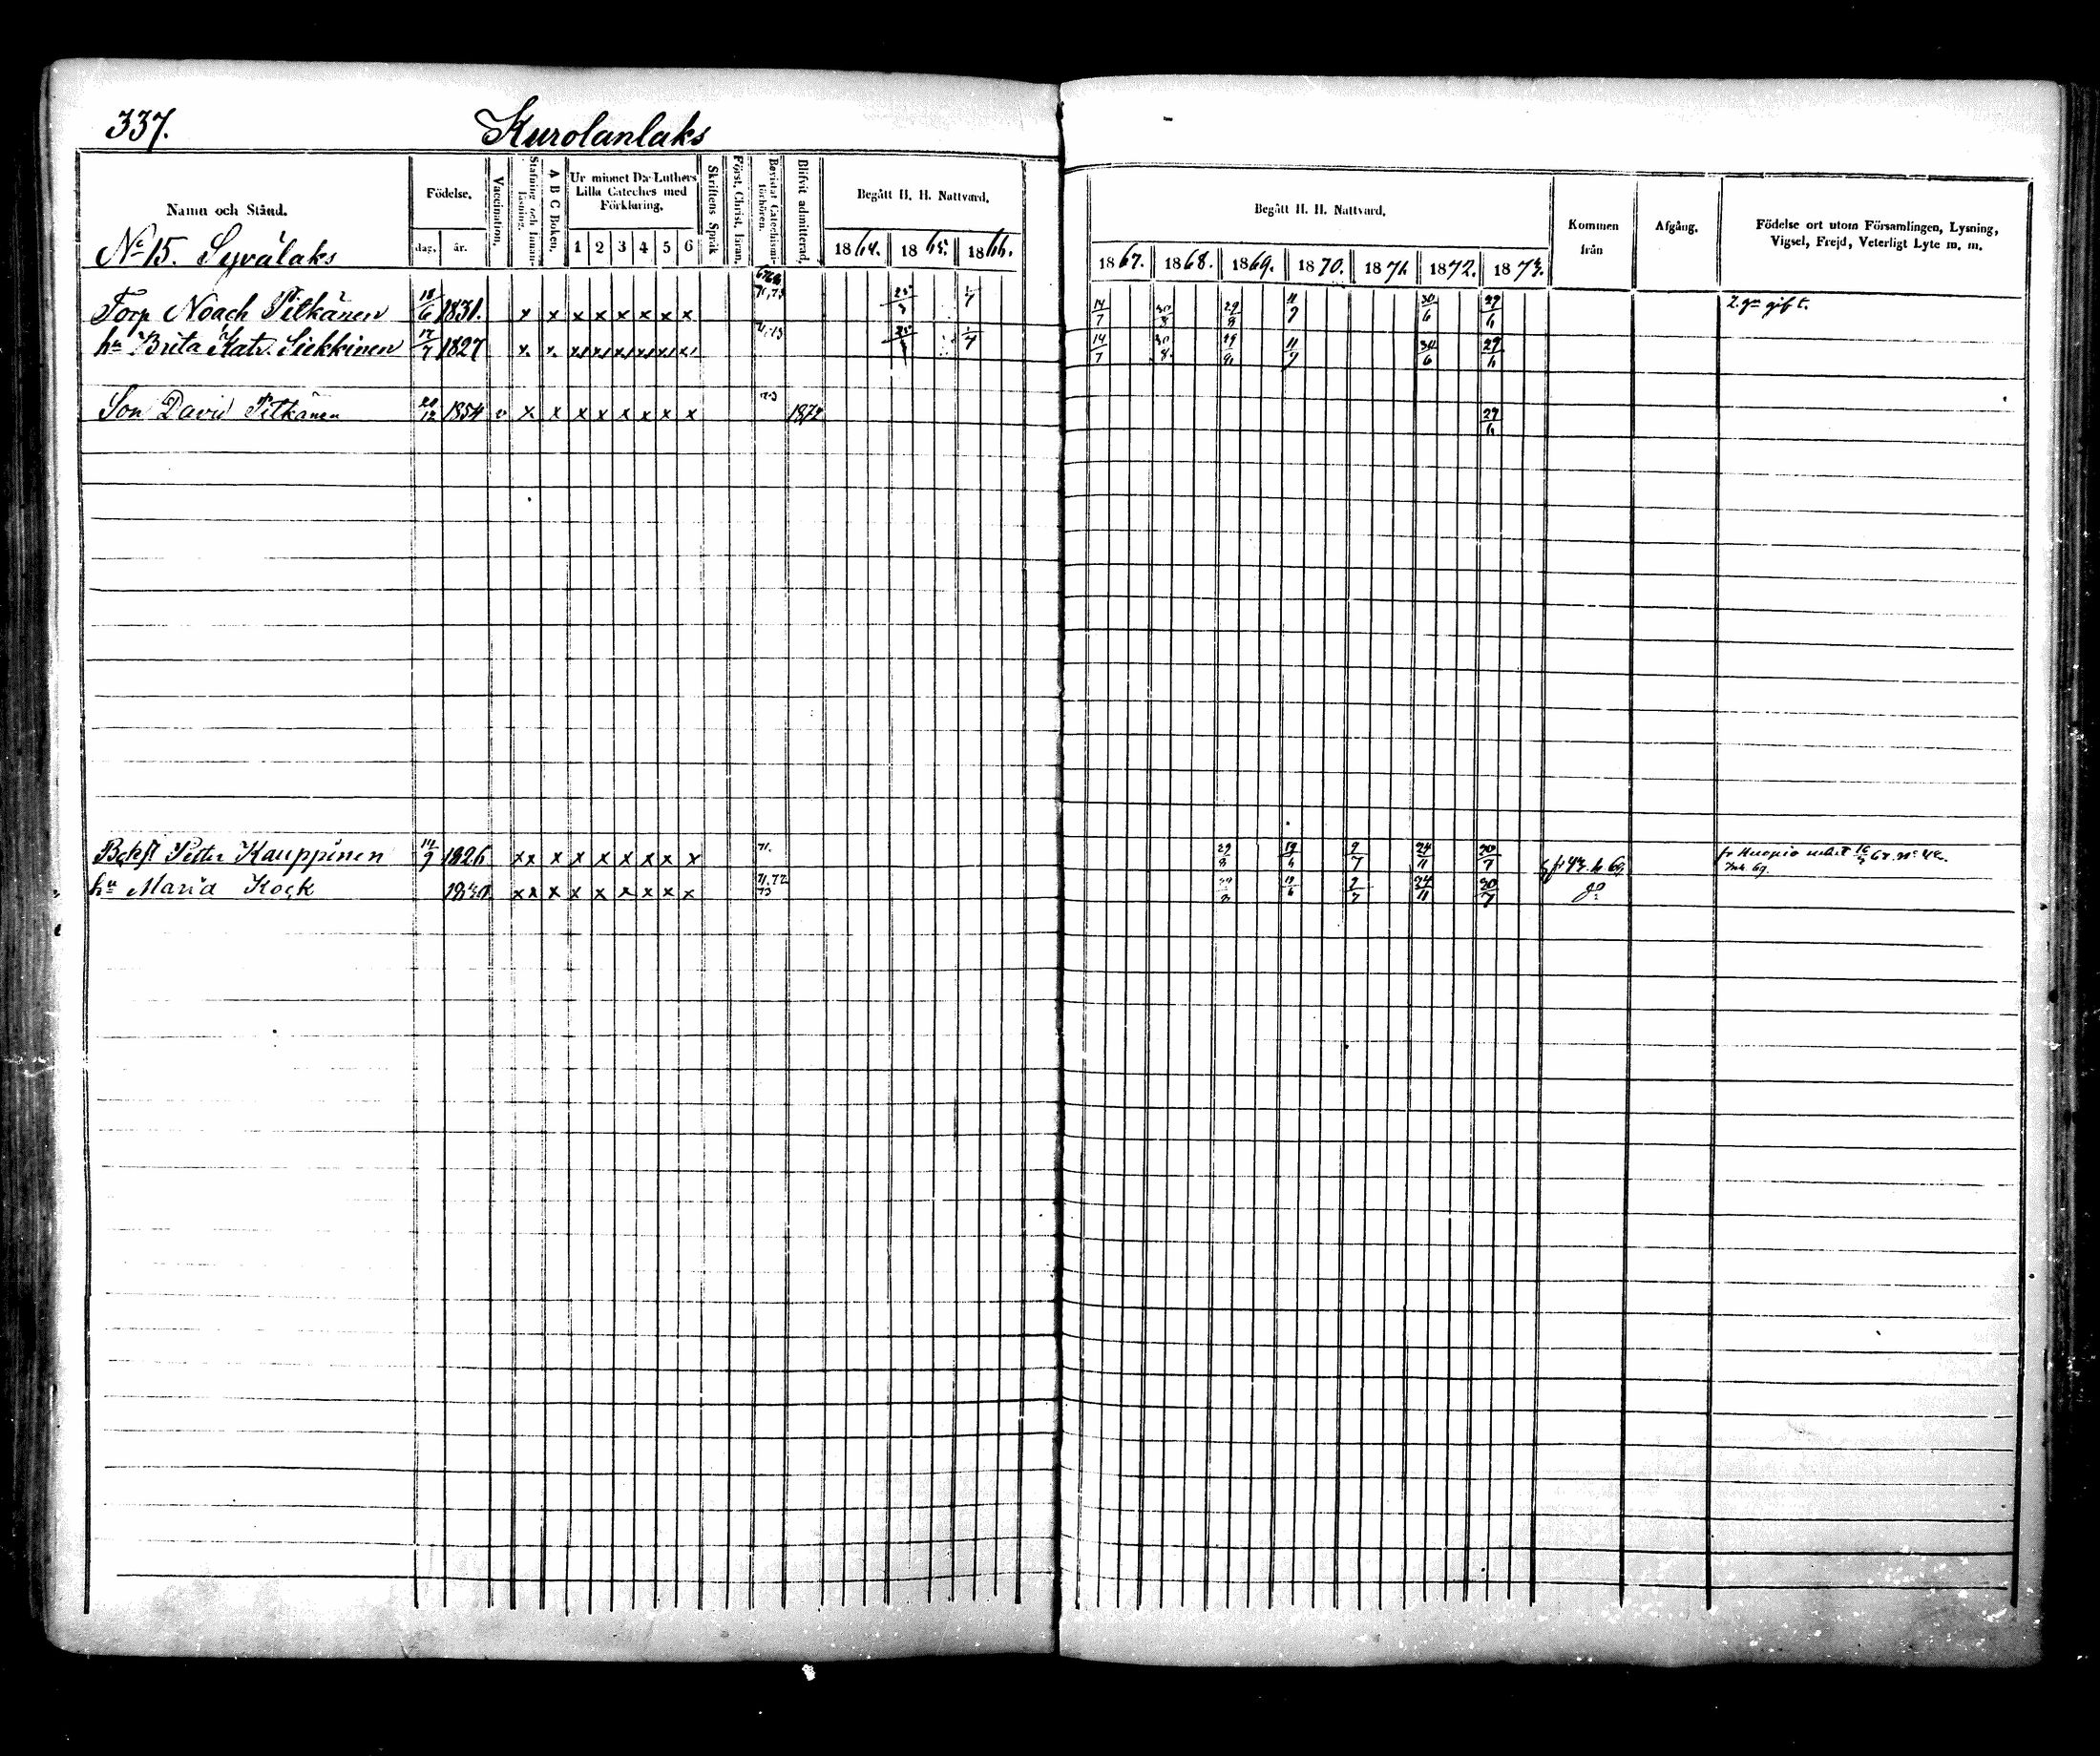 337. Kurolanlaks
Namn och Stånd. Födelse. dag. år. Vaccination. Stafning och Innanläsning. A B C Boken. Ur minnet D:r Luthers Lilla Cateches med Förklaring. 1 2 3 4 5 6 Skriftens Språk Först. Christ. läran. Bevistat Catechismiförhören. Blifvit admitterad. Begått H. H. Nattvard. 1864. 1865. 1866.
Begått H. H. Nattvard. 1867. 1868. 1869. 1870. 1871. 1872. 1873. Kommen från Afgång. Födelse ort utom Församlingen, Lysning, Vigsel, Frejd, Veterligt Lyte m. m.
No 15. Syvälaks
Torp Noach Pitkänen 18/6 1831. x x x x x x x x 71,73 25/3 1/7 14/7 30/8 29/8 11/7 30/6 29/6 2. g. gift.
hu Brita Katr. Siekkinen 17/7 1827 x x x x x x x x 71,73 1/7 14/7 30/8 29/8 11/7 30/6 29/6
Son David Pitkänen 20/12 1854 v x x x x x x x x 73 1872 29/6
Petter Kauppinen 14/9 1826 xx x x x x x x x 71. 29/8 19/6 9/7 24/11 30/7 fr Kuopio
Inh. 69.
hu Maria Kock xx x x x x x x x 71.72 73 29/8 19/6 9/7 24/11 30/7 do